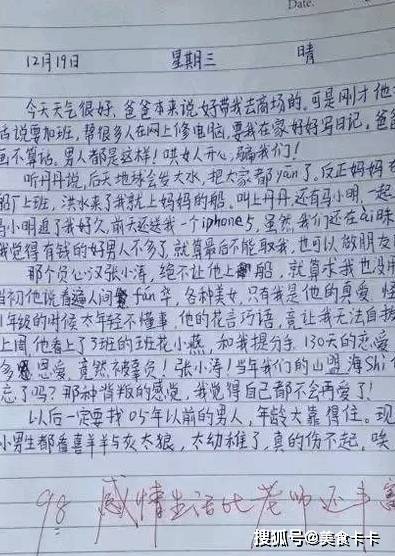 Date.
12月19日 星期三 晴
今天天气很好，爸爸本来说好带我去商场的。可是刚才他
话说要加班，帮很多人在网上修电脑，要我在家好好写日记，爸爸
不算话。男人都是这样！哄女人开心，骗我们！
听丹丹说，后天地球会发大水，把大家都yan了。反正妈妈在
船厂上班，洪水来了我就上妈妈的船。叫上丹丹，还有马小明，一起
马小明追了我好久，前天还送我一个iphone5，虽然我们还在ai昧
我觉得有钱的好男人不多了，就算最后不能取我，也可以做朋友
那个负心汉张小涛，绝不让他上船，就算求我也没用
当初他说看遍人间fán华，各种美女，只有我是他的真爱，怪
1年级的时候太年轻不懂事，他的花言巧语，竟让我无法自拔
上周，他看上了3班的班花小燕，和我提分手，130天的恋爱
多恩爱，竟然被辜负！张小涛！当年我们的山盟海Shi
忘了吗？那种背叛的感觉，我觉得自己都不会再爱了！
以后一定要找05年以前的男人，年龄大靠得住。现
小男生都看喜羊羊与灰太狼，太幼稚了，真的伤不起，唉
98 感情生活比老师还丰富
搜狐号@美食卡卡